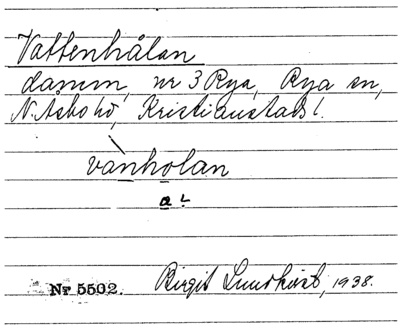 Vattenhålan
damm, nr 3 Rya, Rya sn,
N. Åsbo hd, Kristianstads l.
vanholan
a
Nr 5502. Birgit Lundkvist, 1938.